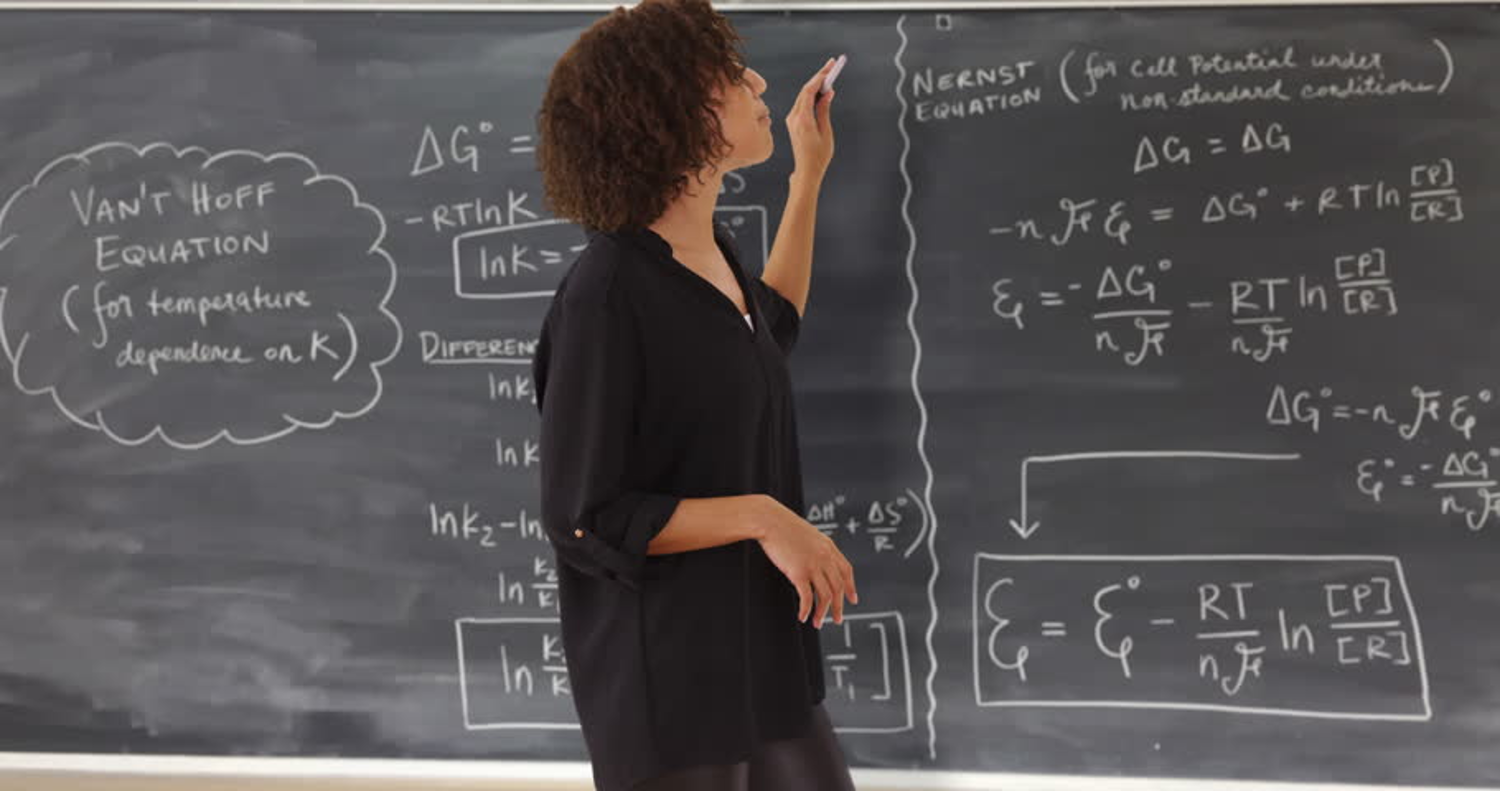 VAN'T HOFF
EQUATION
(for temperature
dependence on K)
ΔG° =
-RTlnK
lnK=
DIFFEREN
lnK
lnK
lnK₂-ln
ΔH° + ΔS°/R)
ln K₂/K
ln K/K
1/T₁]
NERNST EQUATION (for Cell Potential under
non-standard conditions)
ΔG = ΔG
-nℱℰ = ΔG° + RTln [P]/[R]
ℰ = -ΔG°/nℱ - RT/nℱ ln [P]/[R]
ΔG°=-nℱℰ°
ℰ°=-ΔG°/nℱ
ℰ = ℰ° - RT/nℱ ln [P]/[R]